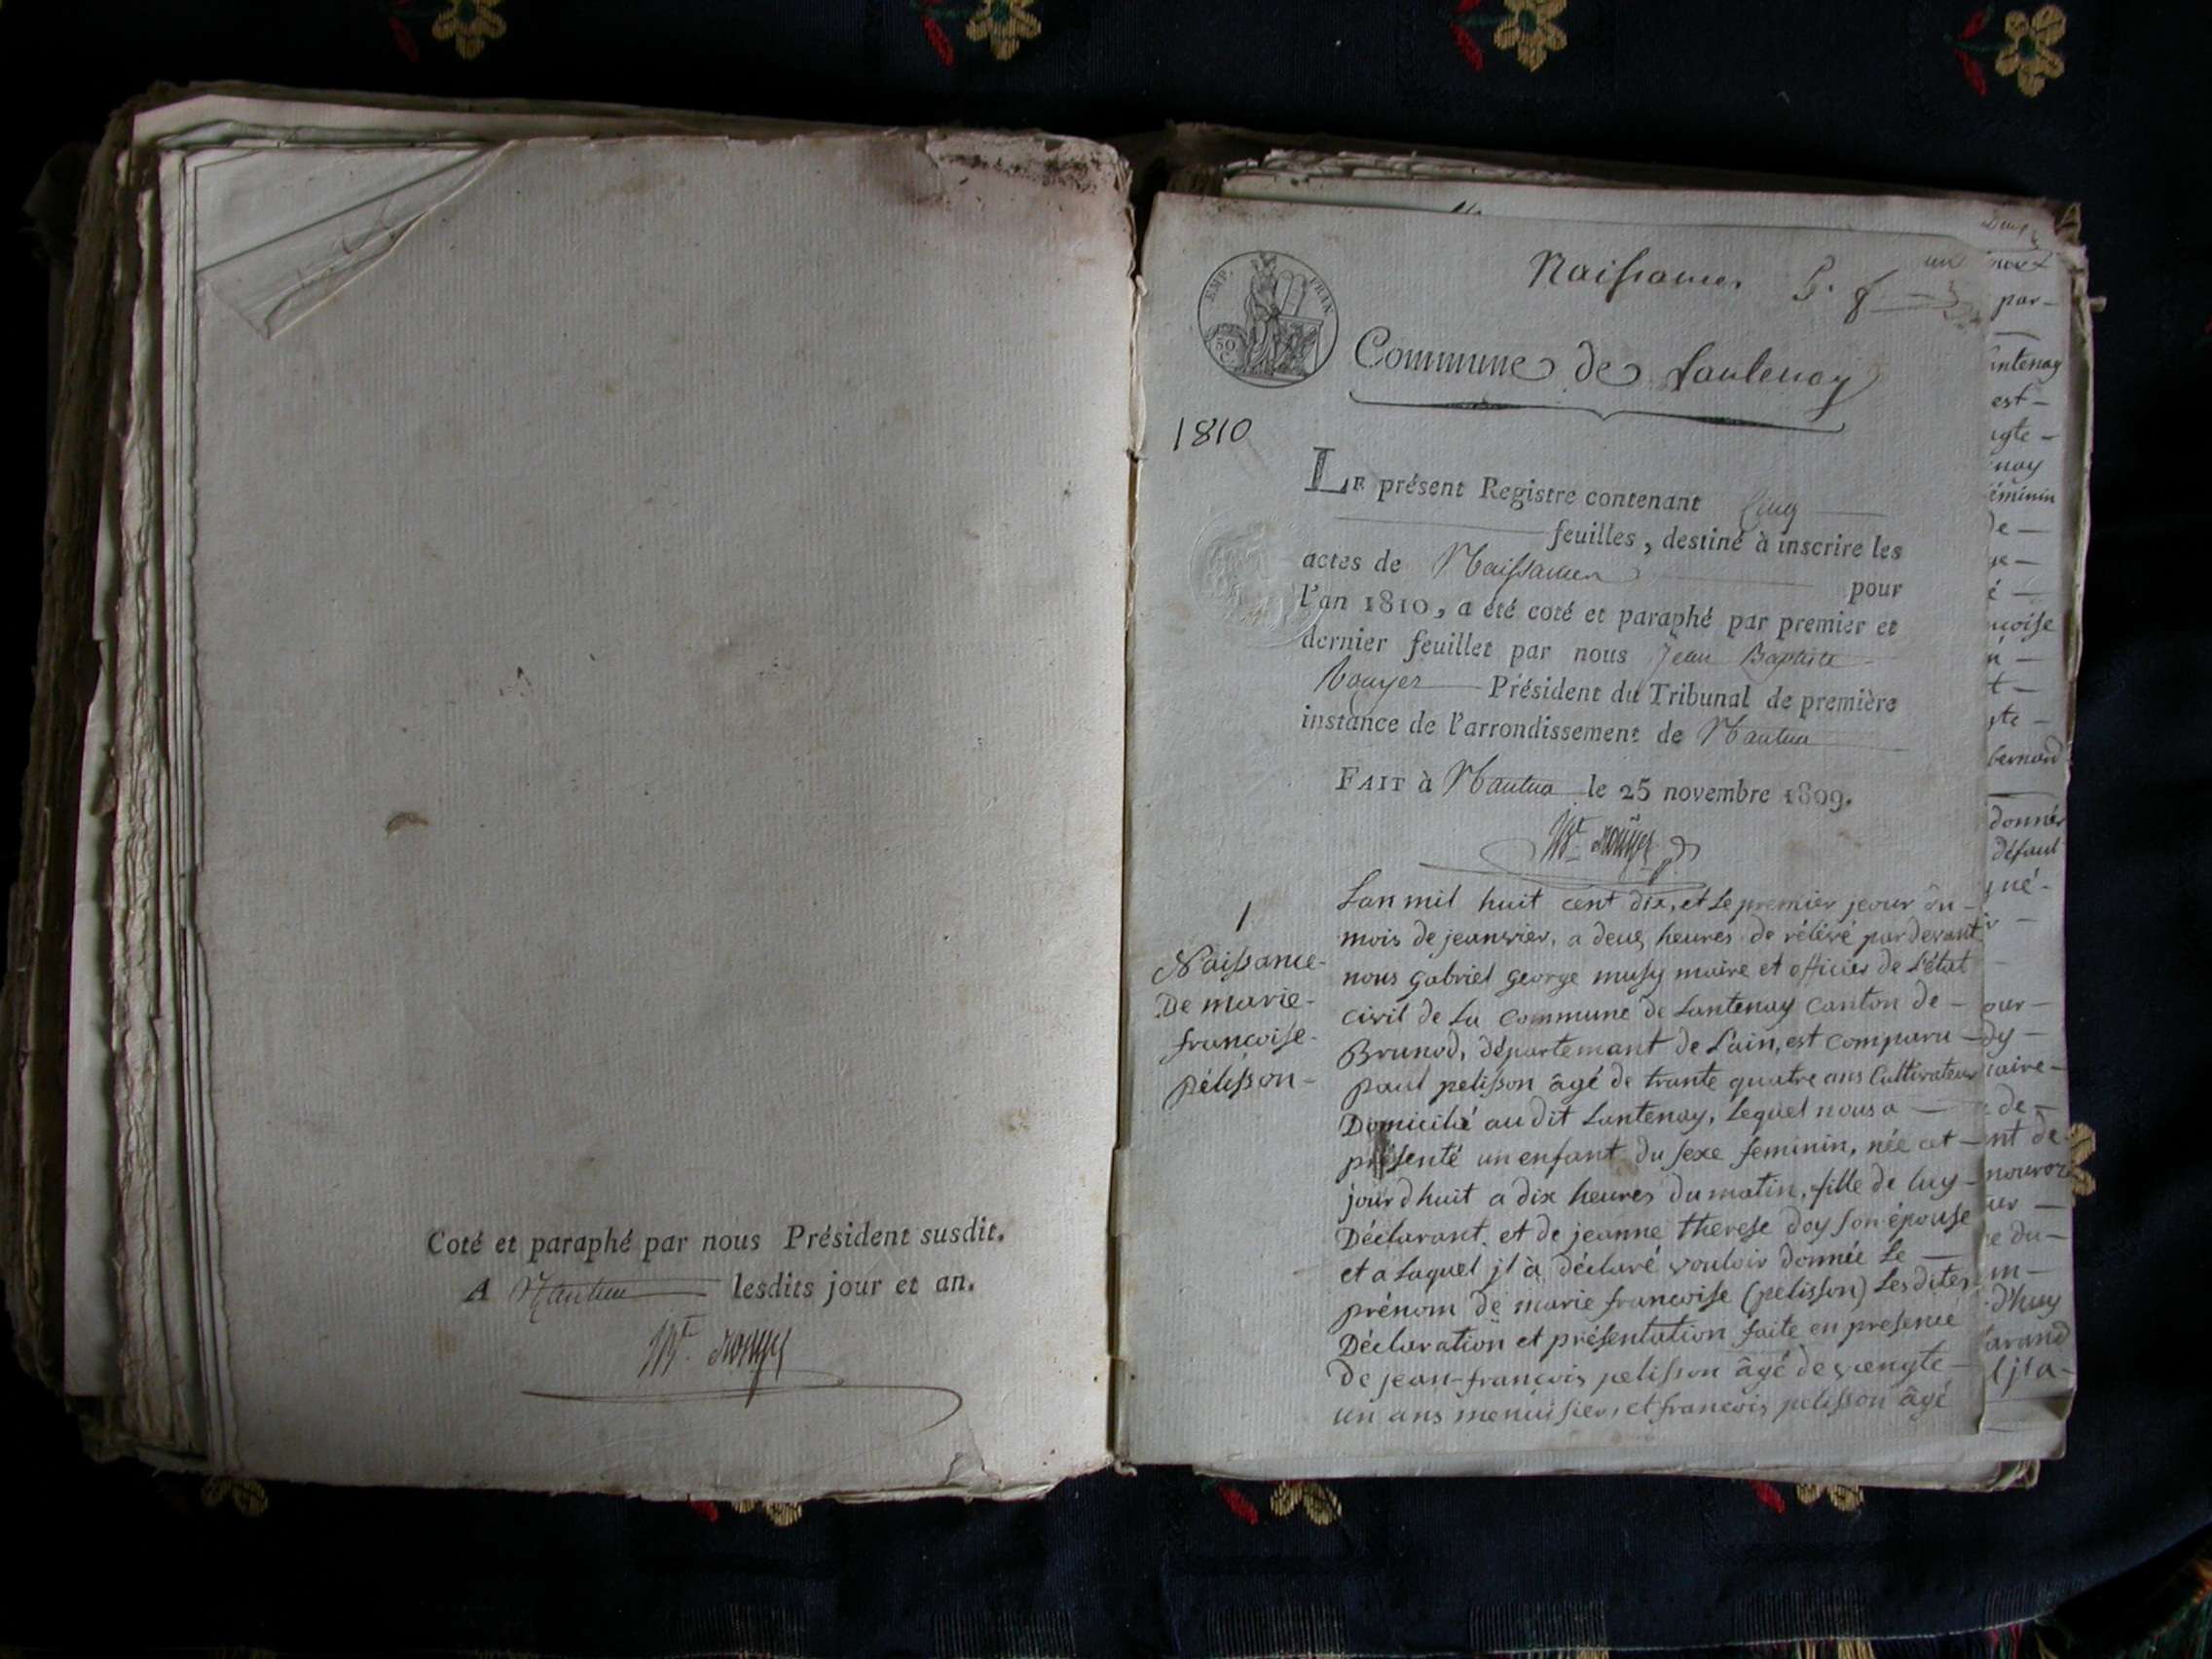 Coté et paraphé par nous Président susdit.
A Nantua lesdits jour et an.
Bt. rouyer
Naissances
un
EMP. FRAN.
50
C.
Commune de Lantenay
1810
LE présent Registre contenant Cinq
feuilles, destiné à inscrire les
actes de Naissances pour
l'an 1810, a été coté et paraphé par premier et
dernier feuillet par nous Jean Baptiste
Rouyer Président du Tribunal de première
instance de l'arrondissement de Nantua
FAIT à Nantua le 25 novembre 1809.
Bt. rouyer
1
Naissance
De marie
françoise
pélisson
Lan mil huit cent dix, et le premier jeour du
mois de jeanvier, a deux heures de rélévé pardevant
nous gabriel george musy maire et officier de L'état
civil de La Commune de Lantenay Canton de
Brunod, département de Lain, est comparu
paul pelisson âgé de trante quatre ans Cultivateur
Domicilié au dit Lantenay, Lequel nous a
présenté un enfant du sexe feminin, née cet
jourdhuit a dix heures du matin, fille de luy
Déclarant, et de jeanne therese doy son épouse
et a Laquel jl à déclaré vouloir donnée Le
prénom de marie françoise (pelisson) Lesdites
Déclaration et présentation faite en presence
de jean-françois pelisson âgé de vengte
un ans menuisier, et françois pelisson âgé
par
intenay
est
nay
éminin
bernard
donné
défaut